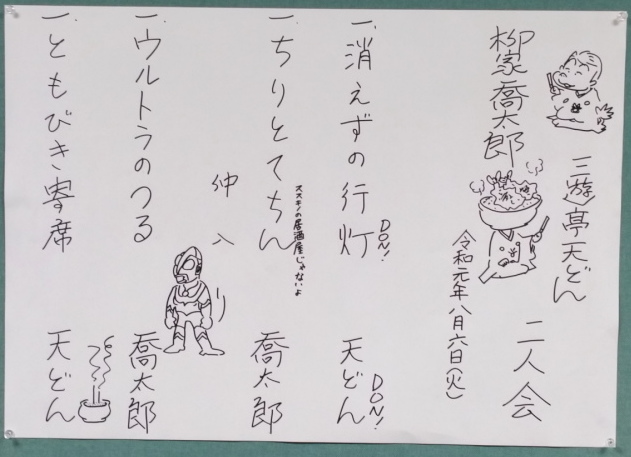 柳家喬太郎
三遊亭天どん
二人会
令和元年八月六日(火)
一、消えずの行灯 天どん
DON!
DON!
一、ちりとてちん 喬太郎
ススキノの居酒屋じゃないよ
仲入り
一、ウルトラのつる 喬太郎
一、ともびき寄席 天どん